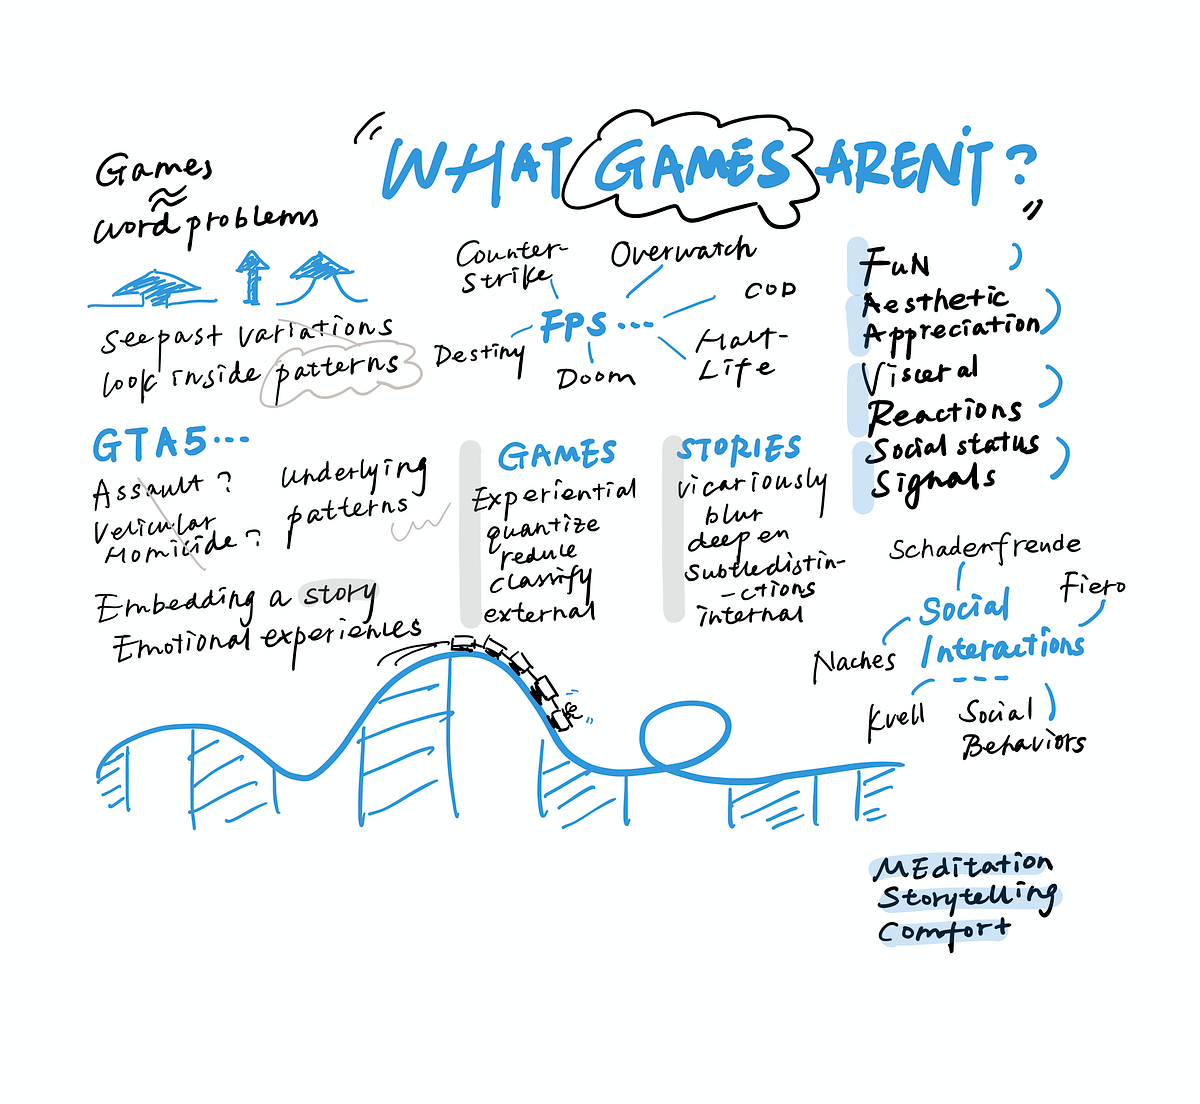 "WHAT GAMES ARENT?"
Games
≈
word problems
see past variations
look inside patterns
Counter-
Strike
Overwatch
COD
FPS...
Destiny
Doom
Half-
Life
Fun
Aesthetic
Appreciation
Visceral
Reactions
Social status
Signals
GTA5...
Assault?
Velicular
Homicide?
Underlying
patterns
Embedding a story
Emotional experiences
GAMES
Experiential
quantize
reduce
classify
external
STORIES
vicariously
blur
deepen
subtledistin-
-ctions
internal
Schadenfreude
Fiero
Social
Interactions
Naches
Kvell
Social
Behaviors
MEditation
Storytelling
Comfort